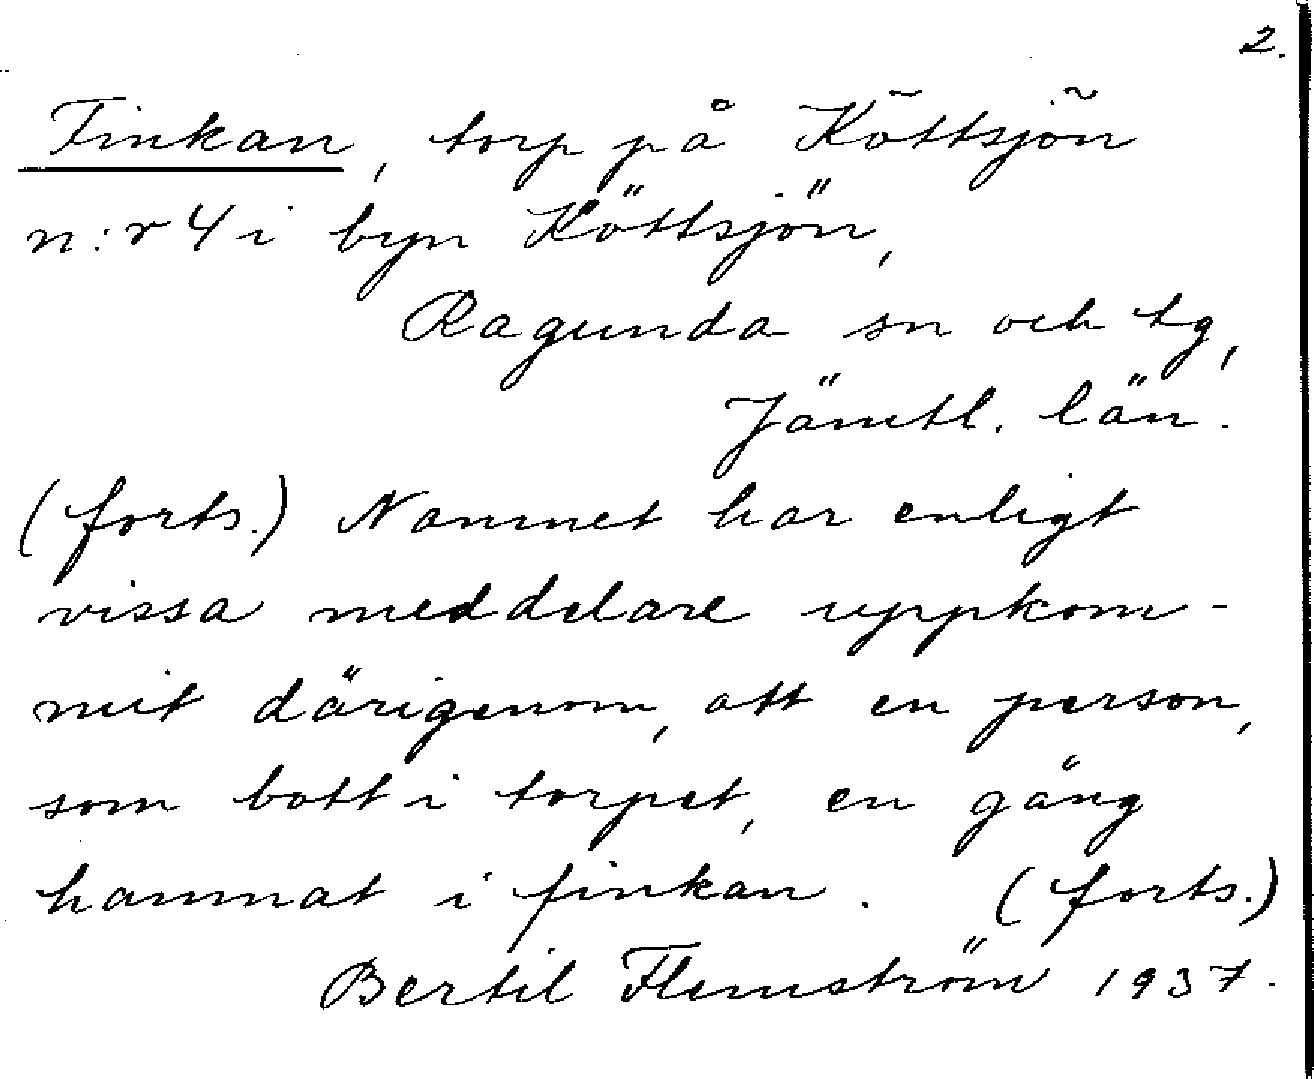 2.
Finkan, torp på Köttsjön
n:r 4 i byn Köttsjön,
Ragunda sn och tg,
Jämtl. län.
(forts.) Namnet har enligt
vissa meddelare uppkom-
mit därigenom, att en person,
som bott i torpet, en gång
hamnat i finkan. (forts.)
Bertil Flemström 1937.